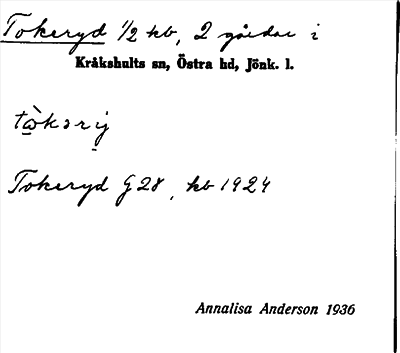 Tokeryd 1/2 kb, 2 gårdar i
Kråkshults sn, Östra hd, Jönk. l.
tὼkərij
Tokeryd G28, kb 1924
Annalisa Anderson 1936